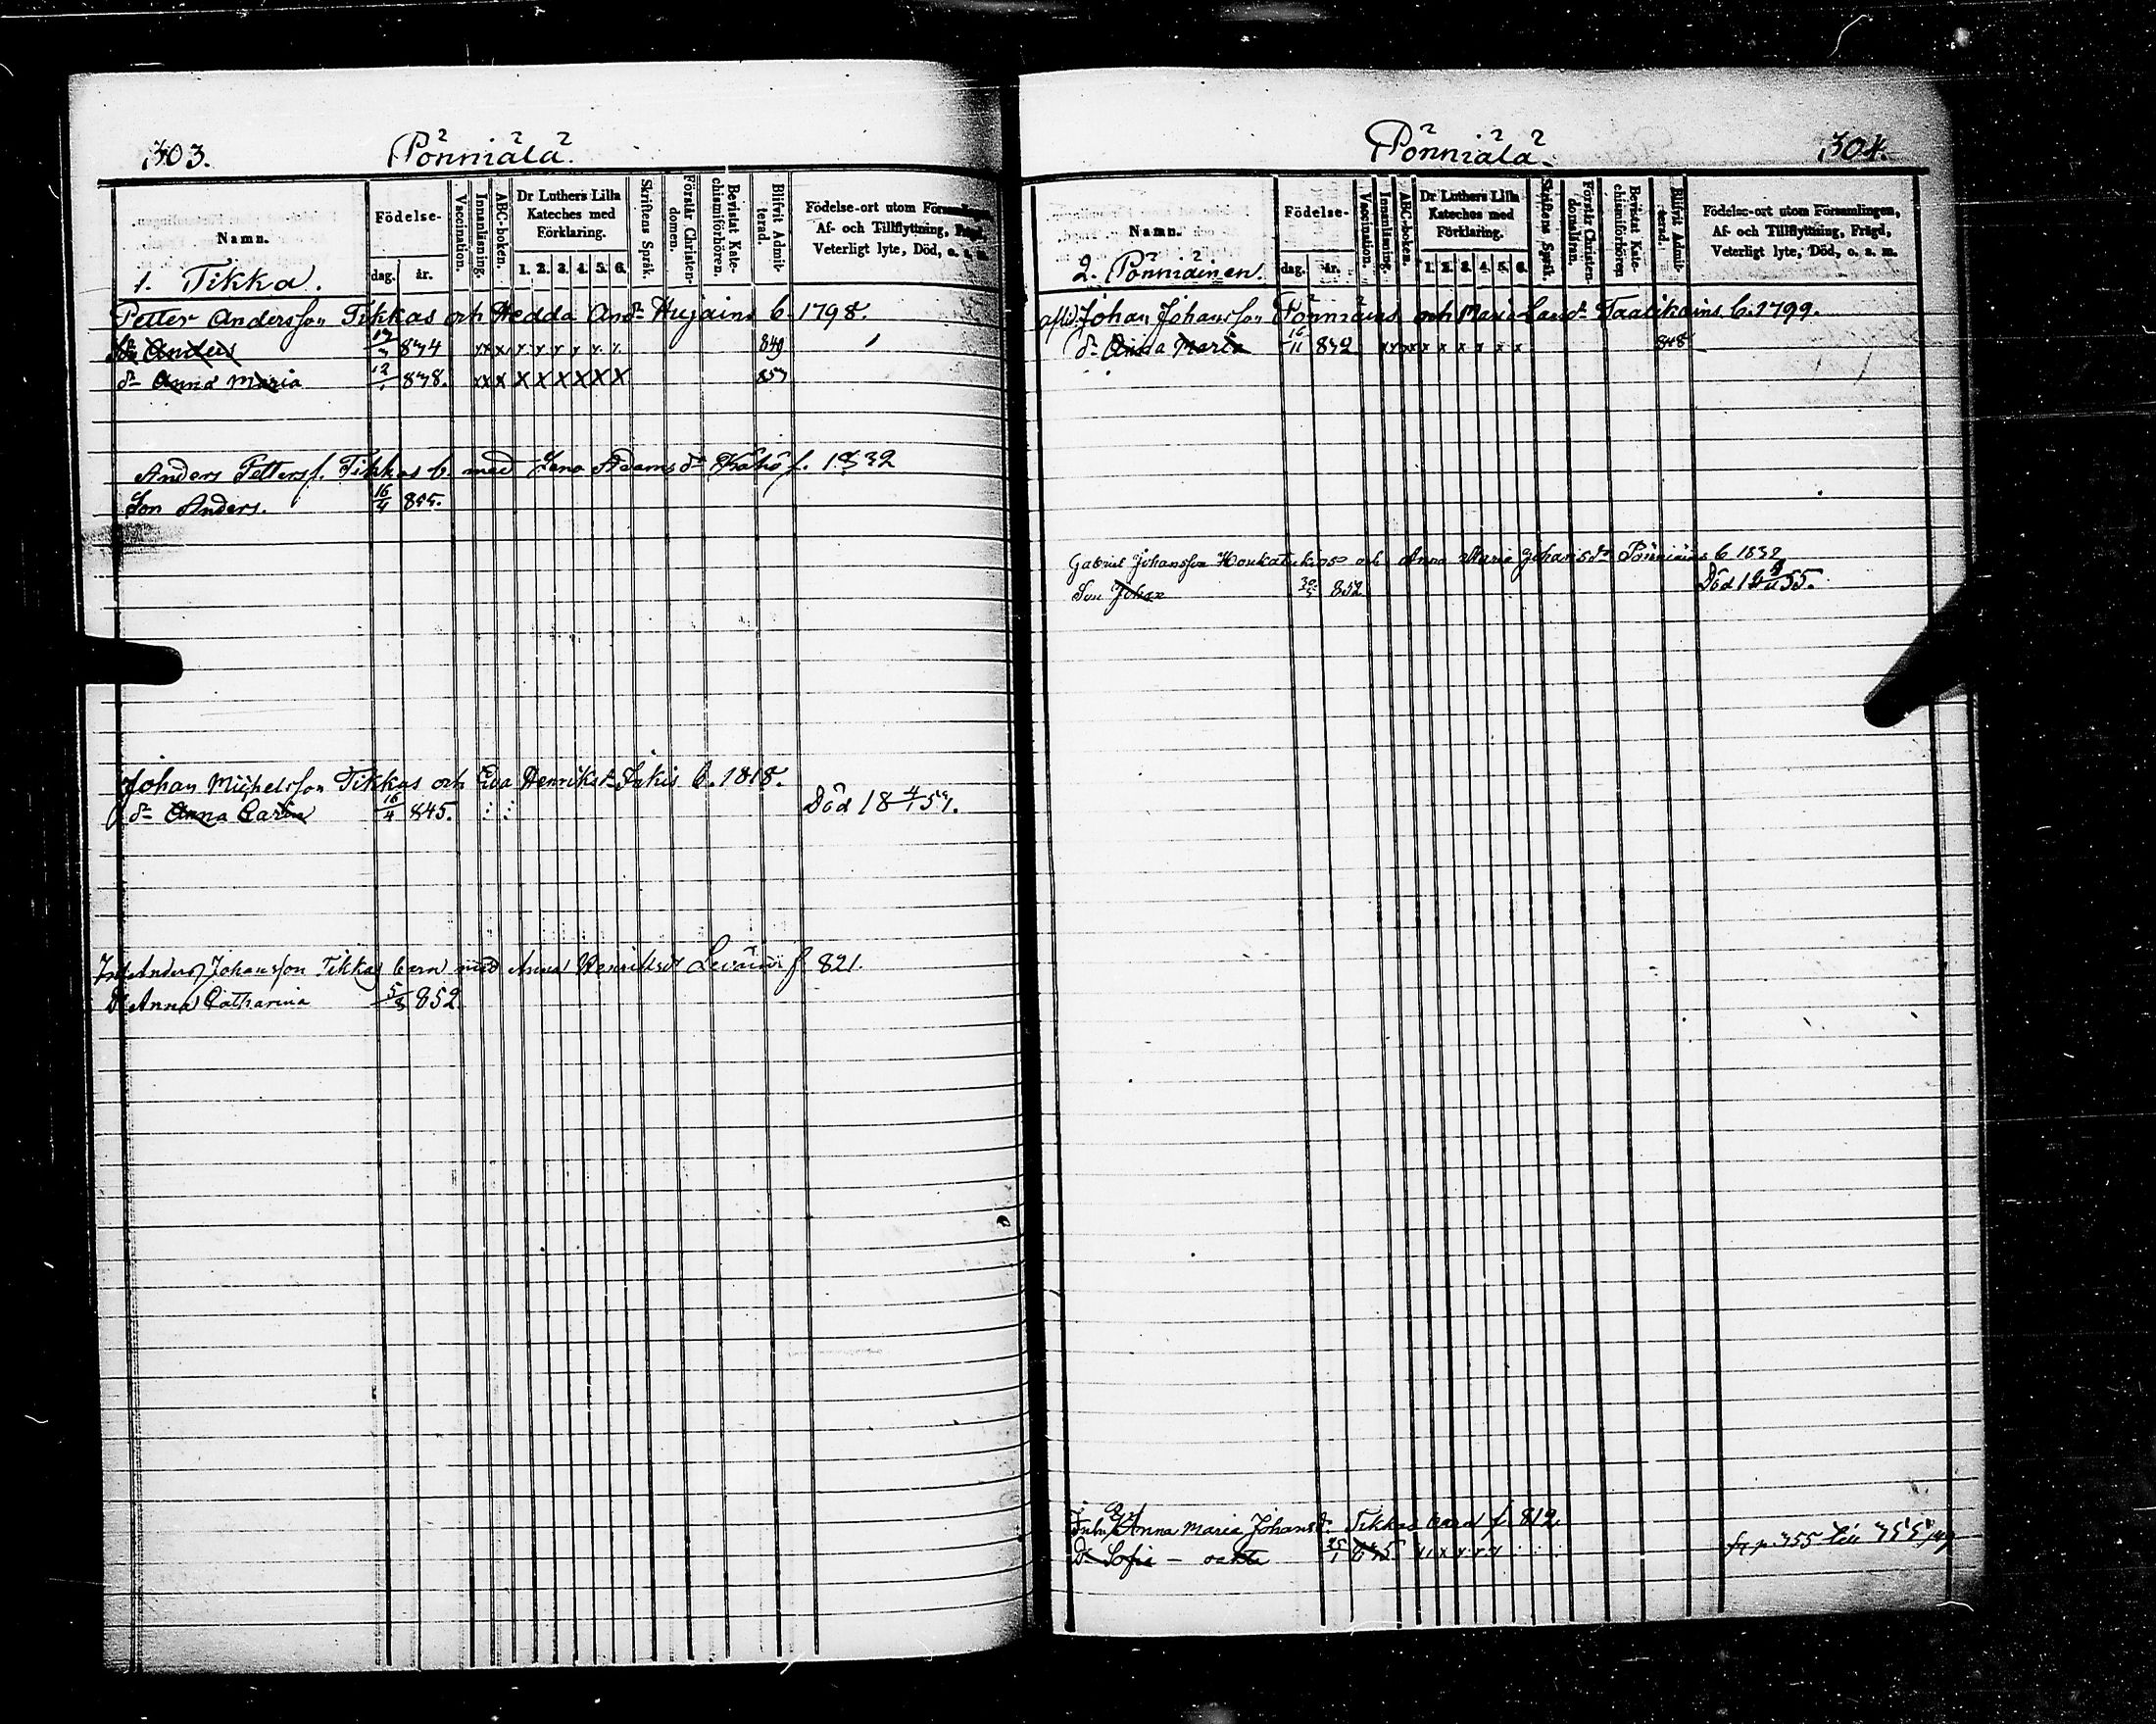 303.
Pönniälä.
Namn.
Födelse-
dag.
år.
Vaccination.
Innanläsning.
ABC-boken.
Dr Luthers Lilla
Kateches med
Förklaring.
1. 2. 3. 4. 5. 6.
Skriftens Språk.
Förstår Christen-
domen.
Bevistat Kate-
chismiförhören.
Blifvit Admit-
terad.
Födelse-ort utom Församlingen,
Af- och Tillflyttning, Frägd,
Veterligt lyte, Död, o. s. m.
1. Tikka.
Petter Andersson Tikkas och Hedda And:dr Hujains b. 1798.
849
dr Anna Maria 12 838. xx x x x x x x x 857
Anders Petterss. Tikkas b. med Lena Adamsdr f. 1832
Son Anders. 16/4 855.
Johan Michelsson Tikkas och Eva Henriksdr b. 1818.
dr Anna Carin 16/4 845. Död 18 4/1 51.
Anders Johansson Tikkas barn med Anna Henriksdr f 821.
dr Anna Catharina 5/8 852
Pönniälä.
304.
Namn.
Födelse-
dag.
år.
Vaccination.
Innanläsning.
ABC-boken.
Dr Luthers Lilla
Kateches med
Förklaring.
1. 2. 3. 4. 5. 6.
Skriftens Språk.
Förstår Christen-
domaläran.
Bevistat Kate-
chismiförhören
Blifvit Admit-
terad.
Födelse-ort utom Församlingen,
Af- och Tillflyttning, Frägd,
Veterligt lyte, Död, o. s. m.
2. Pönniäinen.
Johan Johansson Pönniäins och Maria Taalikains b. 1799.
dr Anna Maria 16/11 832 848
Gabriel Johansson och Anna Maria Johansdr Pönniäins b 1832
Son Johan 30/5 852 Död 55.
Anna Maria Johansdr Tikkas barn f. 812
dr Sofia — oäkta 25/1 835 p. 355